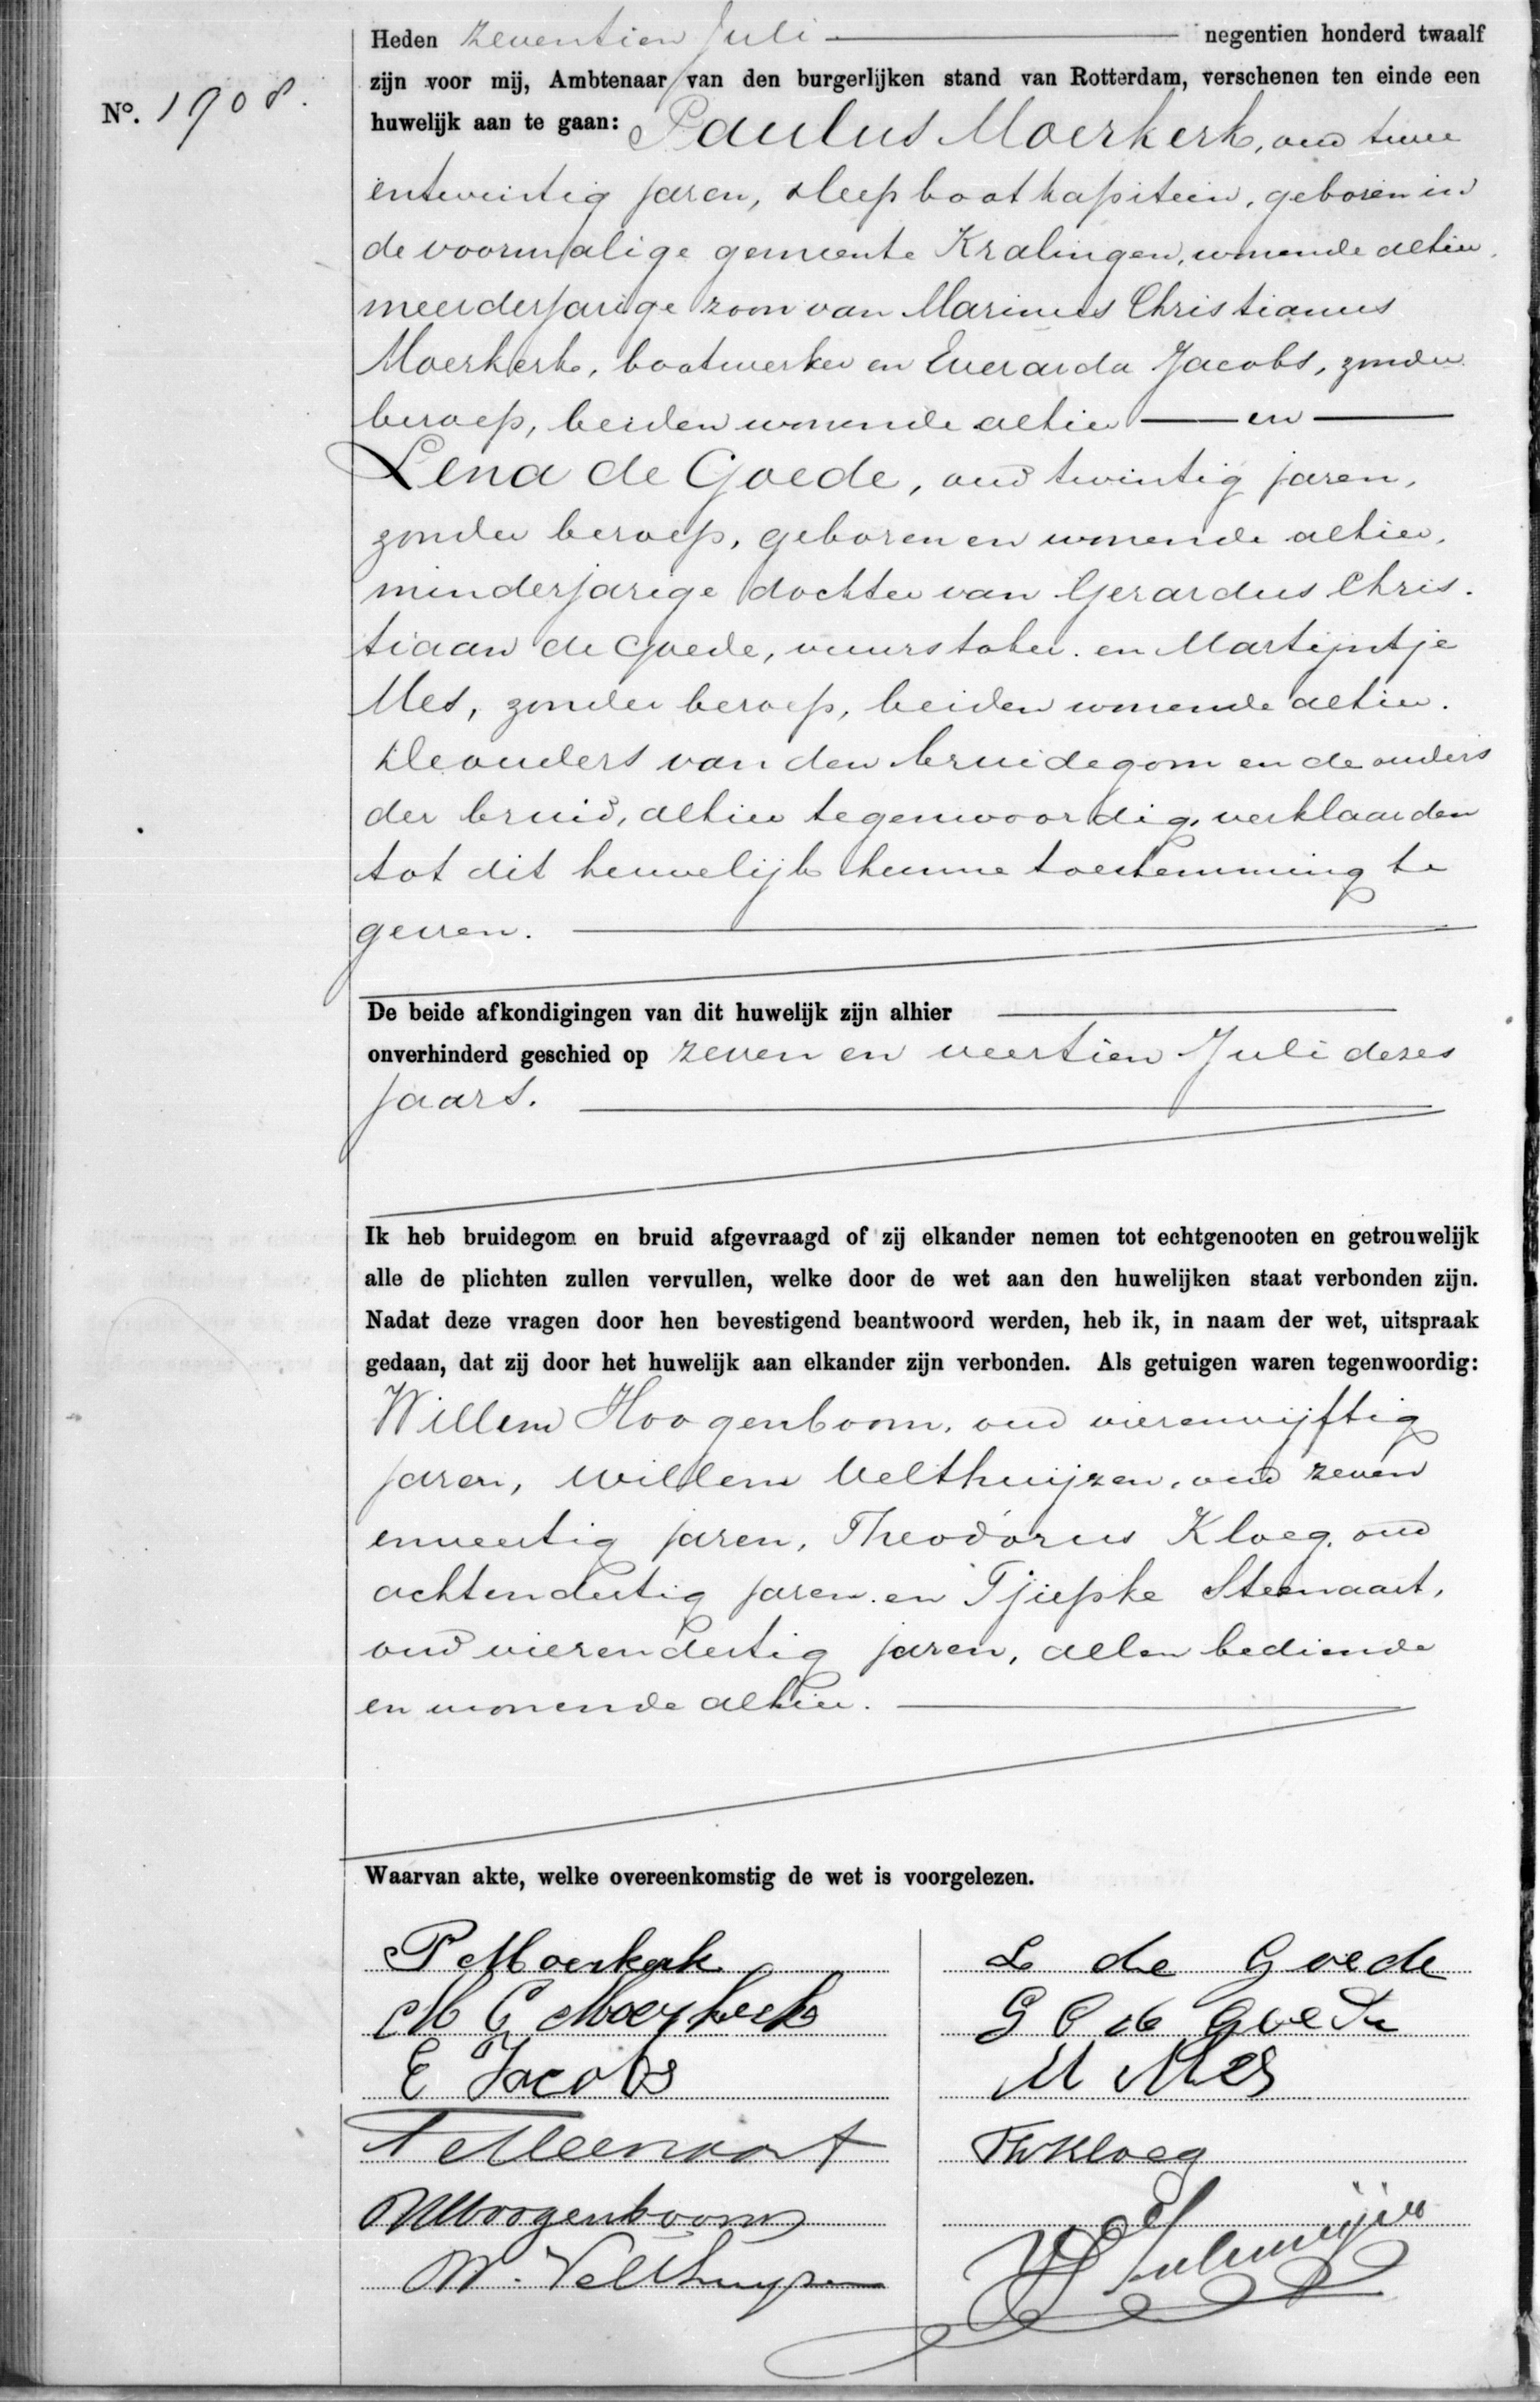 Heden zeventien Juli negentien honderd twaalf
zijn voor mij, Ambtenaar van den burgerlijken stand van Rotterdam, verschenen ten einde een
No. 1908.
huwelijk aan te gaan: Paulus Moerkerk, oud twee
entwintig jaren, sleepbootkapitein, geboren in
de voormalige gemeente Kralingen, wonende alhier,
meerderjarige zoon van Marinus Christianus
Moerkerk, bootwerker en Everarda Jacobs, zonder
beroep, beiden wonende alhier — en —
Lena de Goede, oud twintig jaren,
zonder beroep, geboren en wonende alhier,
minderjarige dochter van Gerardus Chris-
tiaan de Goede, vuurstoker en Martijntje
Mes, zonder beroep, beiden wonende alhier.
De ouders van den bruidegom en de ouders
der bruid, alhier tegenwoordig, verklaarden
tot dit huwelijk hunne toestemming te
geven.
De beide afkondigingen van dit huwelijk zijn alhier
onverhinderd geschied op zeven en veertien Juli dezes
jaars.
Ik heb bruidegom en bruid afgevraagd of zij elkander nemen tot echtgenooten en getrouwelijk
alle de plichten zullen vervullen, welke door de wet aan den huwelijken staat verbonden zijn.
Nadat deze vragen door hen bevestigend beantwoord werden, heb ik, in naam der wet, uitspraak
gedaan, dat zij door het huwelijk aan elkander zijn verbonden. Als getuigen waren tegenwoordig:
Willem Hoogenboom, oud vierenvijftig
jaren, Willem Velthuijzen, oud zeven
enveertig jaren, Theodorus Kloeg, oud
achtendertig jaren en Tjiepke Steenaart,
oud vierendertig jaren, allen bediende
en wonende alhier.
Waarvan akte, welke overeenkomstig de wet is voorgelezen.
P Moerkerk
L de Goede
M C Moerkerk
G C de Goede
E Jacobs
M Mes
T Steenaart
Th Kloeg
W Hoogenboom
W. Velthuyzen